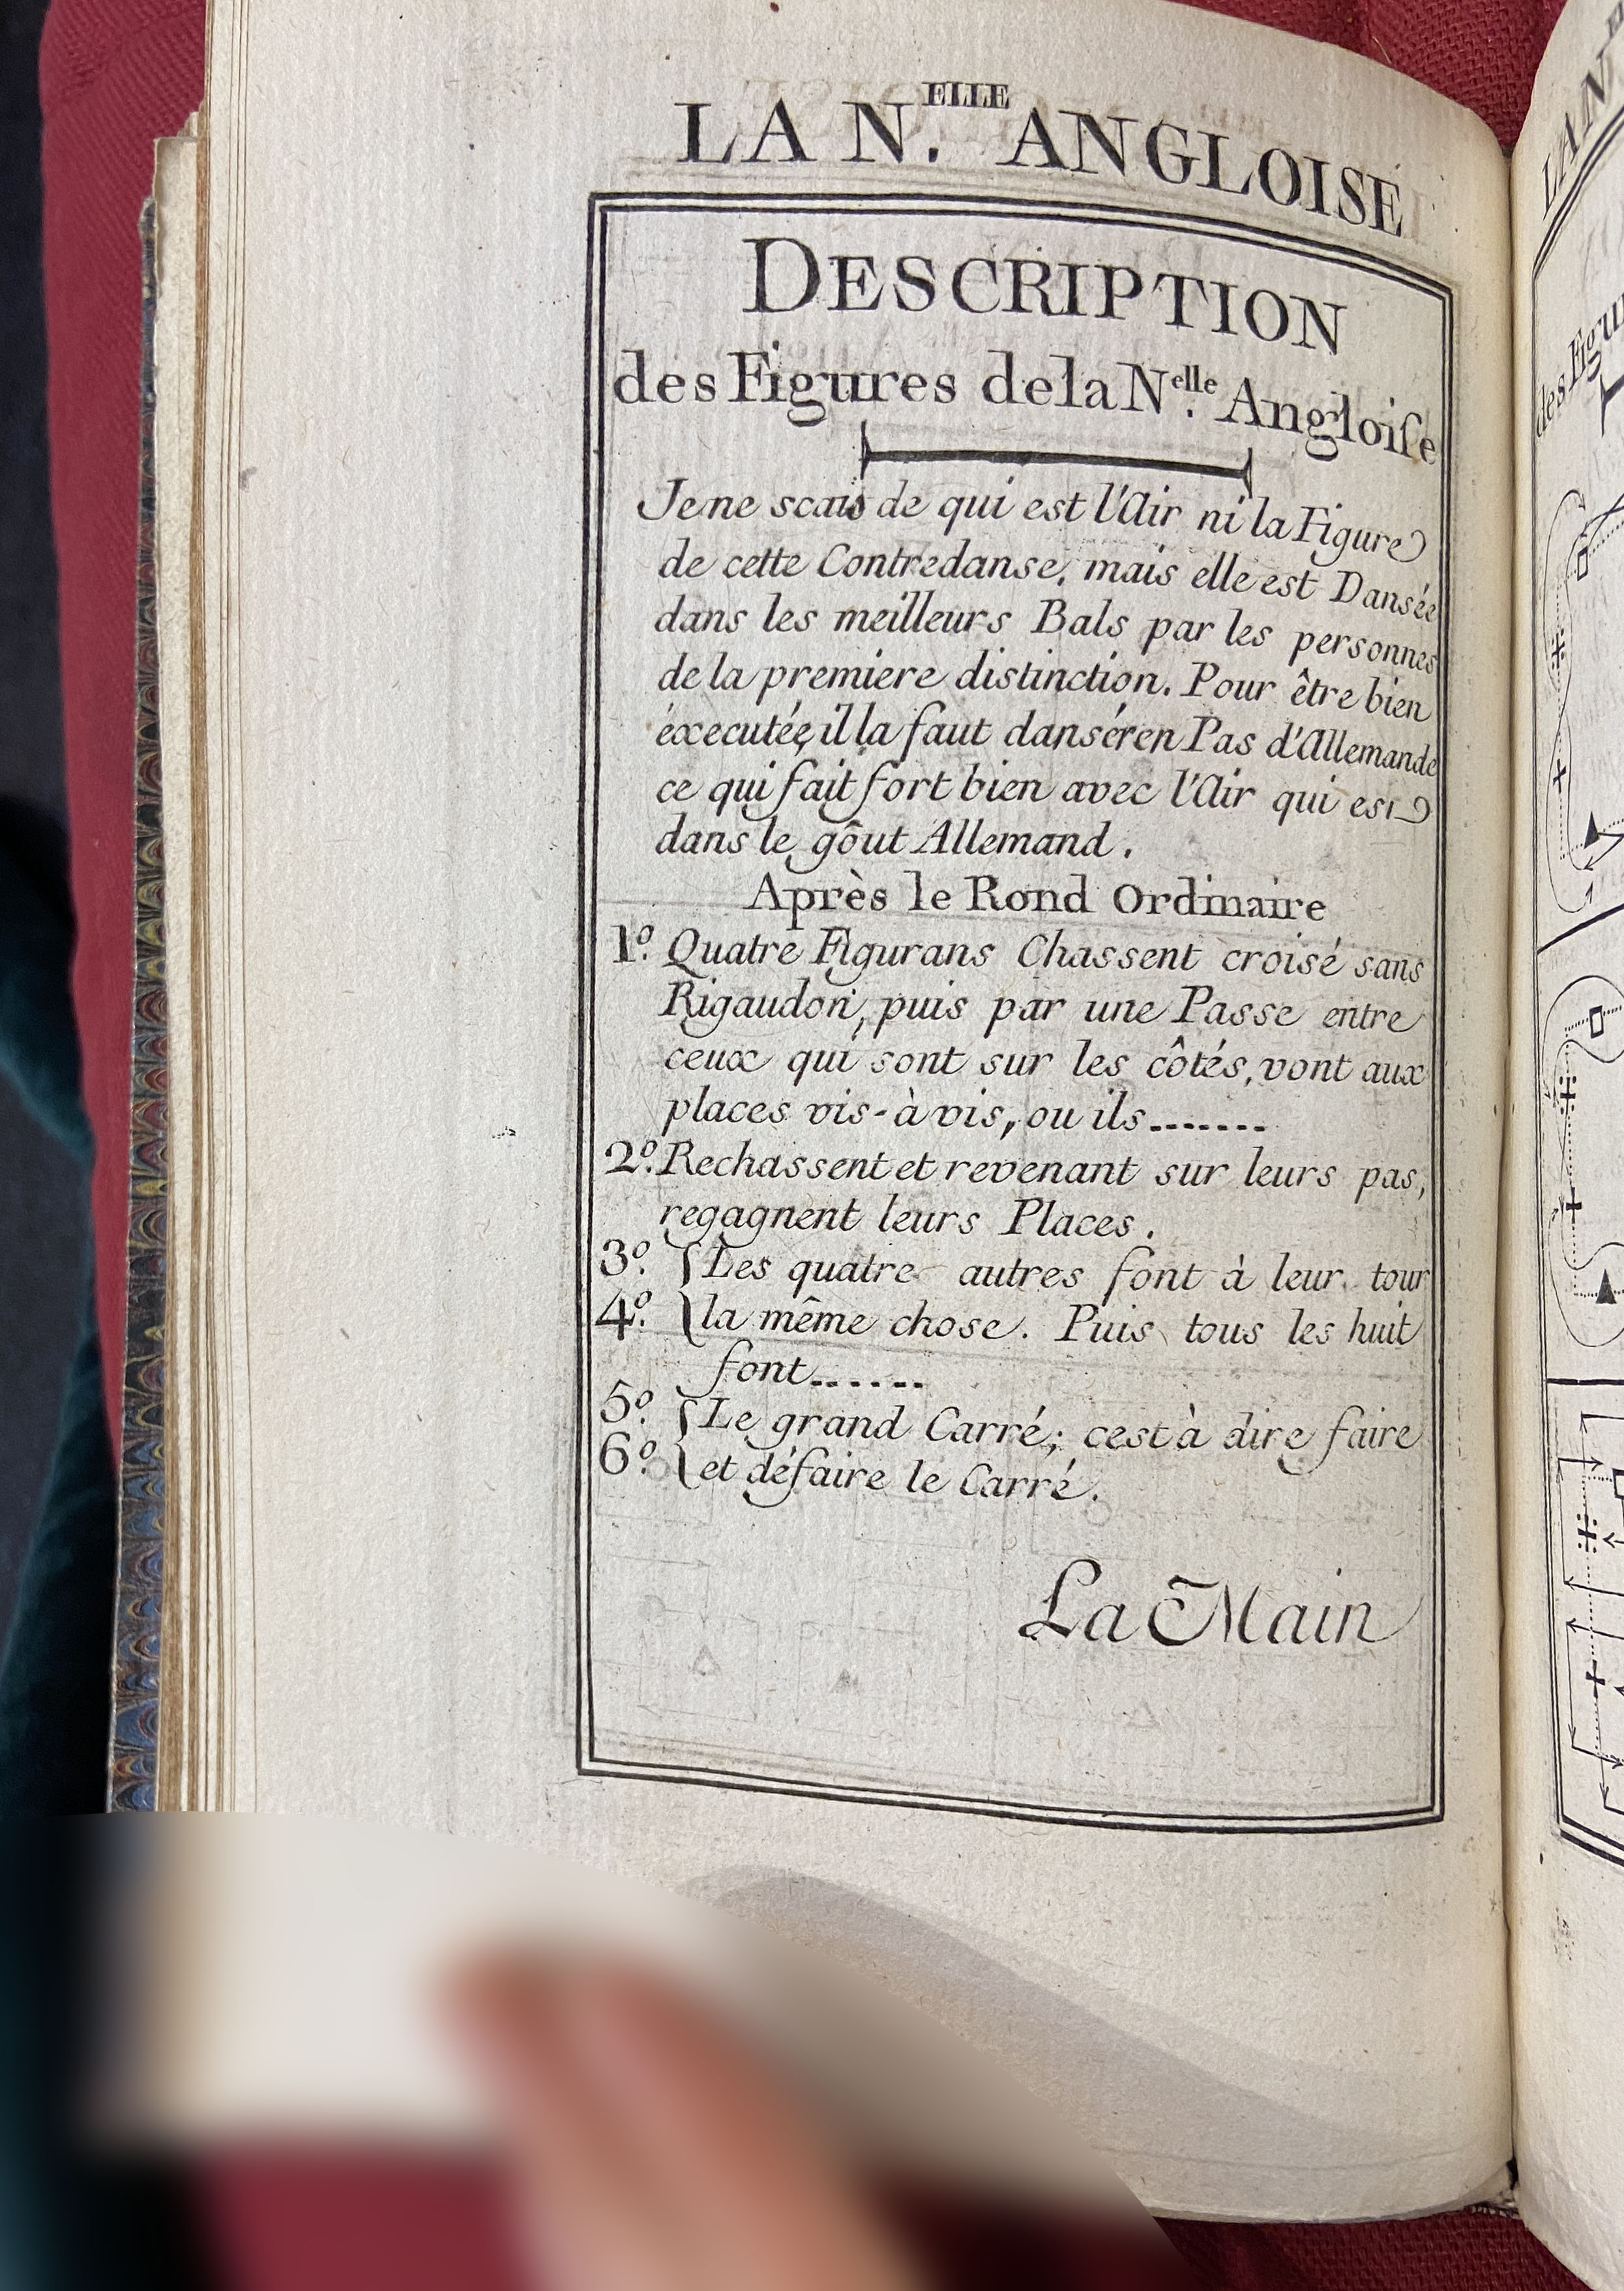 LA N.ELLE ANGLOISE
DESCRIPTION
des Figures de la N.elle Angloiſe
Je ne scais de qui est l'Air ni la Figure
de cette Contredanse, mais elle est Dansée
dans les meilleurs Bals par les personnes
de la premiere distinction. Pour être bien
éxecutée, il la faut dansér en Pas d'Allemande
ce qui fait fort bien avec l'Air qui est
dans le goût Allemand.
Après le Rond Ordinaire
1º. Quatre Figurans Chassent croisé sans
Rigaudon, puis par une Passe entre
ceux qui sont sur les côtés, vont aux
places vis-à vis, ou ils.......
2º. Rechassent et revenant sur leurs pas,
regagnent leurs Places.
3º. { Les quatre autres font à leur tour
4º. { la même chose. Puis tous les huit
font......
5º. { Le grand Carré; cest à dire faire
6º. { et défaire le Carré.
La Main
LA N
des Figu